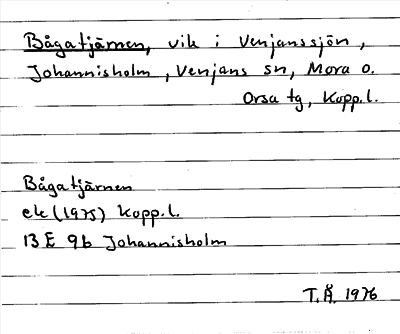 Bågatjärnen, vik i Venjanssjön,
Johannisholm, Venjans sn, Mora o.
Orsa tg, Kopp.l.
Bågatjärnen
ek (1975) Kopp.l.
13 E 9b Johannisholm
T.Å. 1976